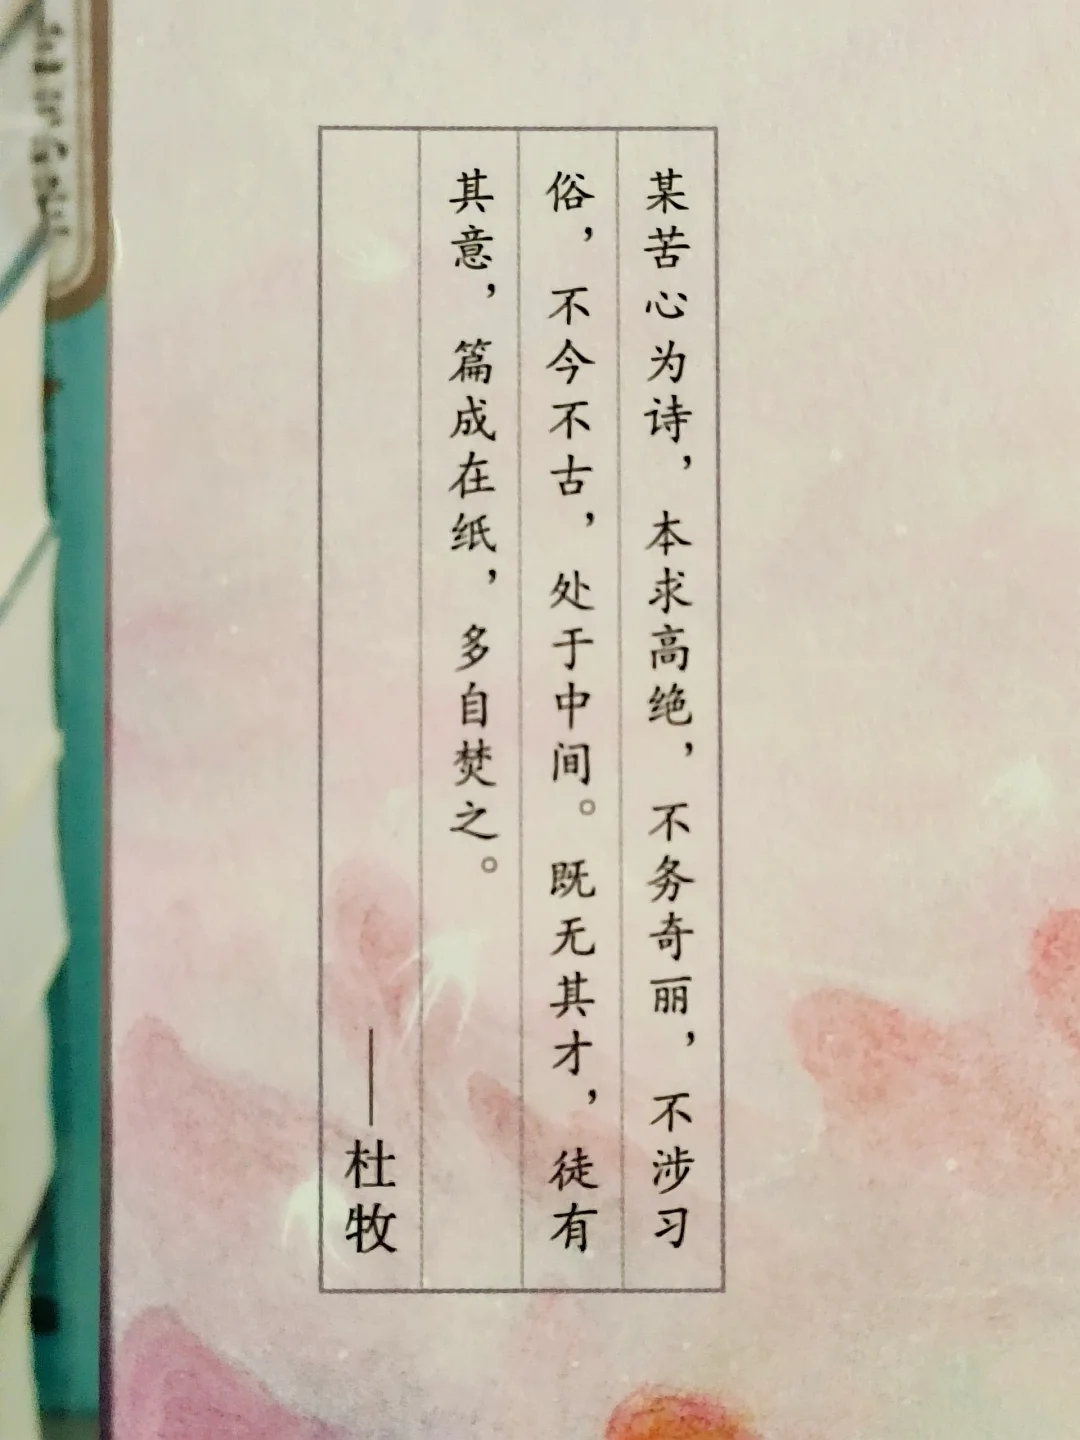 某苦心为诗，本求高绝，不务奇丽，不涉习
俗，不今不古，处于中间。既无其才，徒有
其意，篇成在纸，多自焚之。
——杜牧